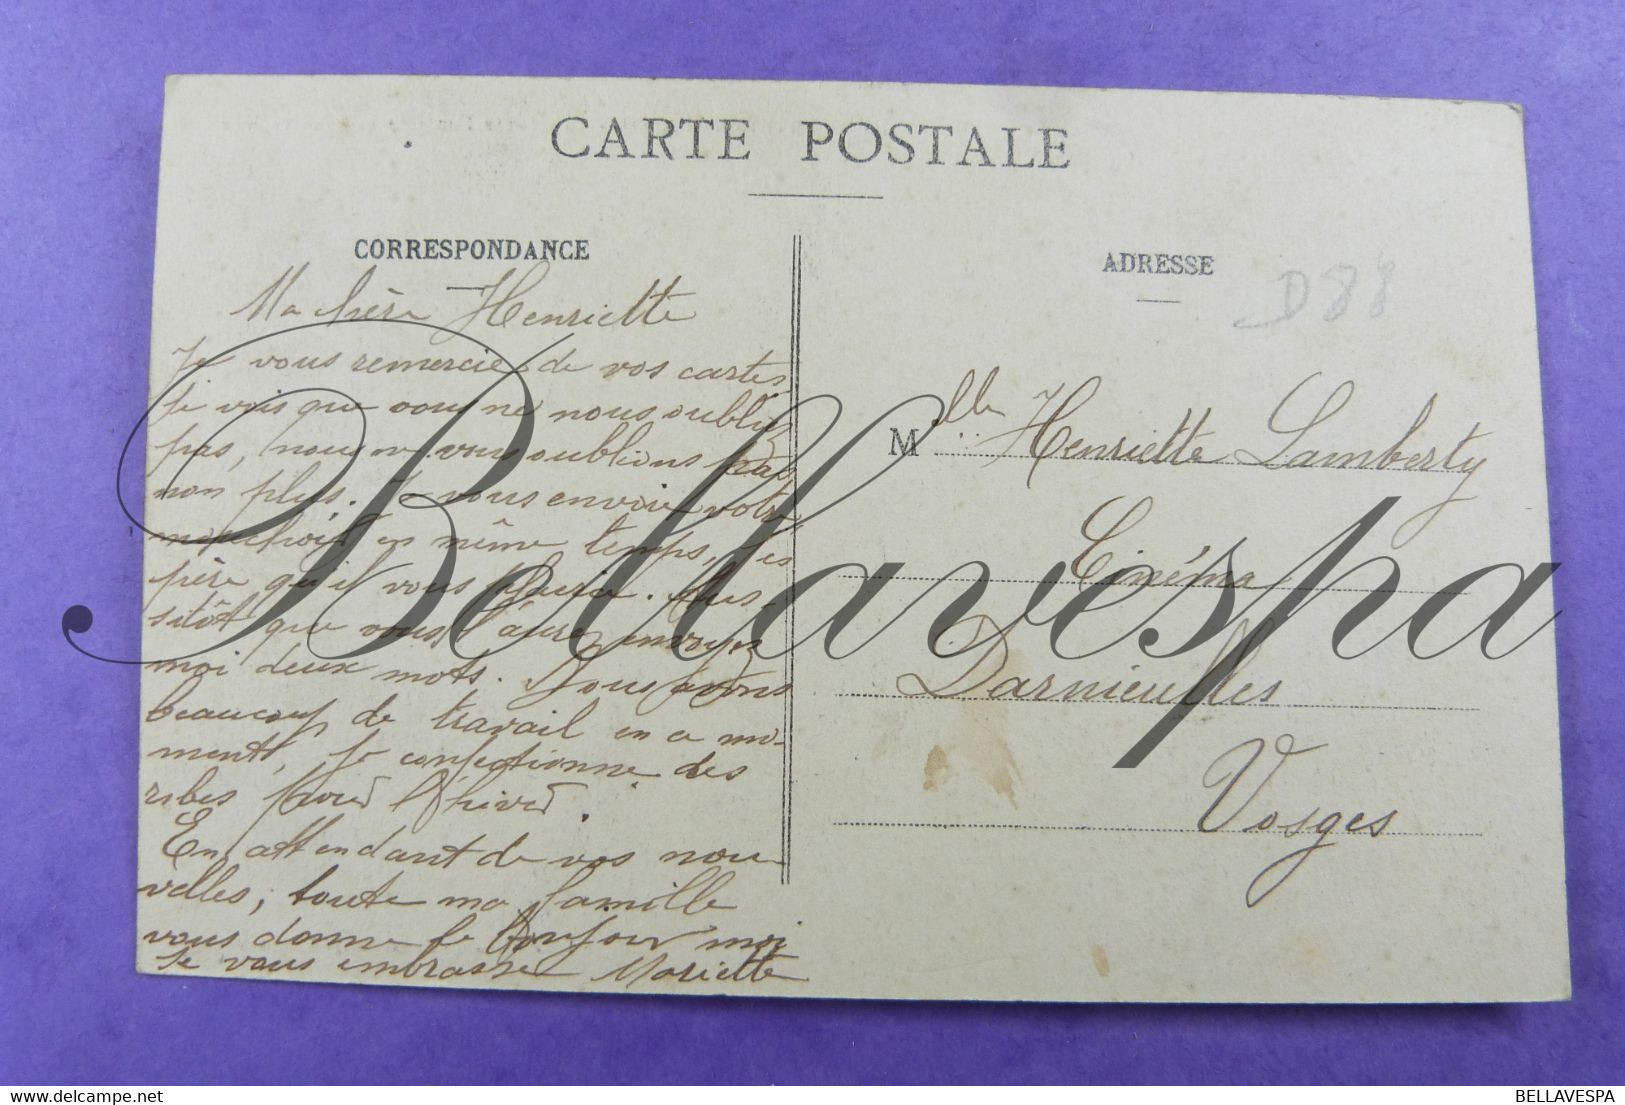 CARTE POSTALE
CORRESPONDANCE
Ma chère Henriette
Je vous remercie de vos cartes,
je vois que vous ne nous oubliez
pas, nous ne vous oublions pas
non plus. Je vous envoie votre
mouchoir en même temps, j'es
père qu'il vous plaira. Aus-
sitôt que vous l'aurez envoyez
moi deux mots. Nous avons
beaucoup de travail en ce mo-
ment, je confectionne des
robes pour l'hiver.
En attendant de vos nou
velles, toute ma famille
vous donne le bonjour moi
je vous embrasse Mariette
ADRESSE
D88
Mlle Henriette Lamberty
Cinéma
Darnieulles
Vosges
Bellavespa
delcampe.net
BELLAVESPA